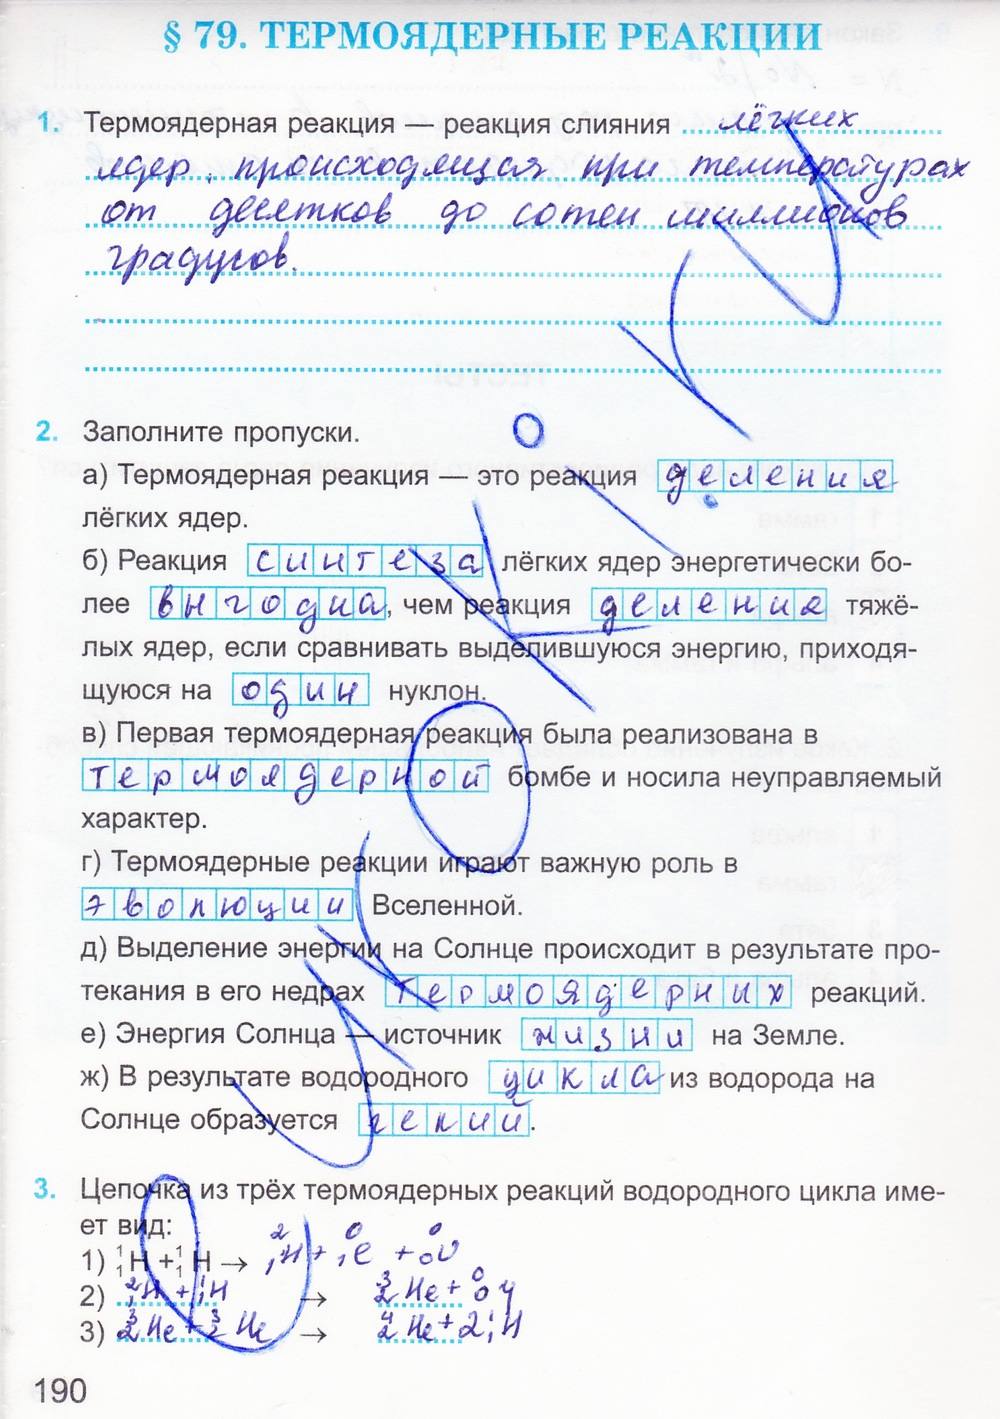 § 79. ТЕРМОЯДЕРНЫЕ РЕАКЦИИ
1. Термоядерная реакция — реакция слияния лёгких
ядер, происходящая при температурах
от десятков до сотен миллионов
градусов.
2. Заполните пропуски.
а) Термоядерная реакция — это реакция деления
лёгких ядер.
б) Реакция синтеза лёгких ядер энергетически бо-
лее выгодна, чем реакция деления тяжё-
лых ядер, если сравнивать выделившуюся энергию, приходя-
щуюся на один нуклон.
в) Первая термоядерная реакция была реализована в
термоядерной бомбе и носила неуправляемый
характер.
г) Термоядерные реакции играют важную роль в
эволюции Вселенной.
д) Выделение энергии на Солнце происходит в результате про-
текания в его недрах термоядерных реакций.
е) Энергия Солнца — источник жизни на Земле.
ж) В результате водородного цикла из водорода на
Солнце образуется гелий.
3. Цепочка из трёх термоядерных реакций водородного цикла име-
ет вид:
1) ¹₁H + ¹₁H → ²₁H + ⁰₁e + ⁰₀υ
2) ²₁H + ¹₁H → ³₂He + ⁰₀γ
3) ³₂He + ³₂He → ⁴₂He + 2¹₁H
190